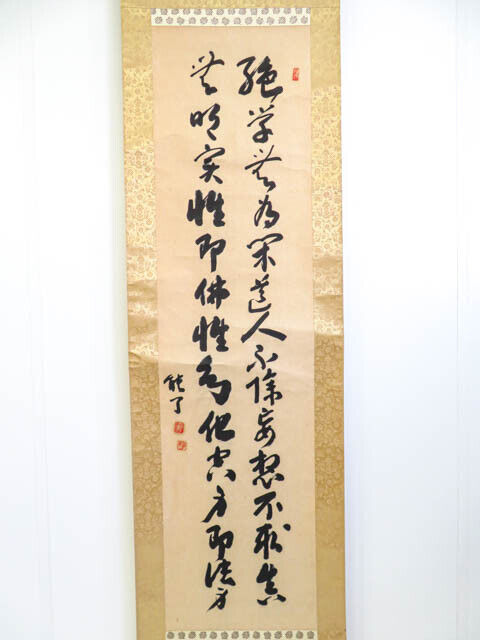 絶学無為閑道人不除妄想不求真
無明実性即佛性幻化空身即法身
能了